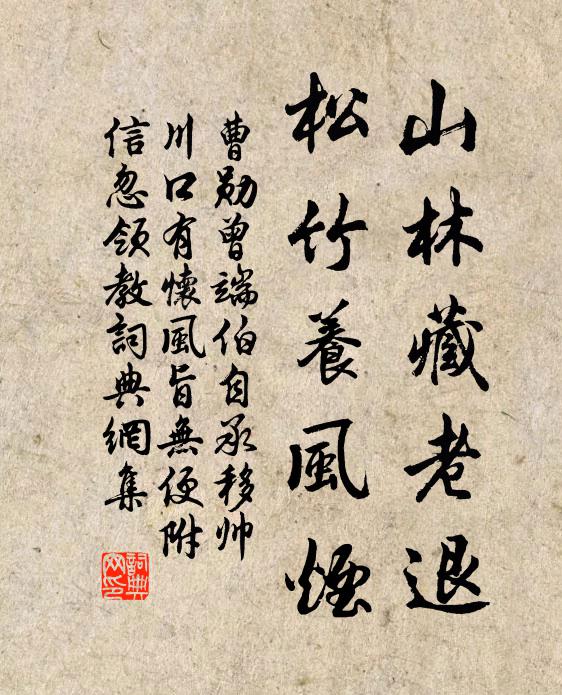 山林藏老退
松竹養風煙
曹勛曾端伯自承移帅
川口有懷風旨無便附
信忽領教詞典網集
詞典网印